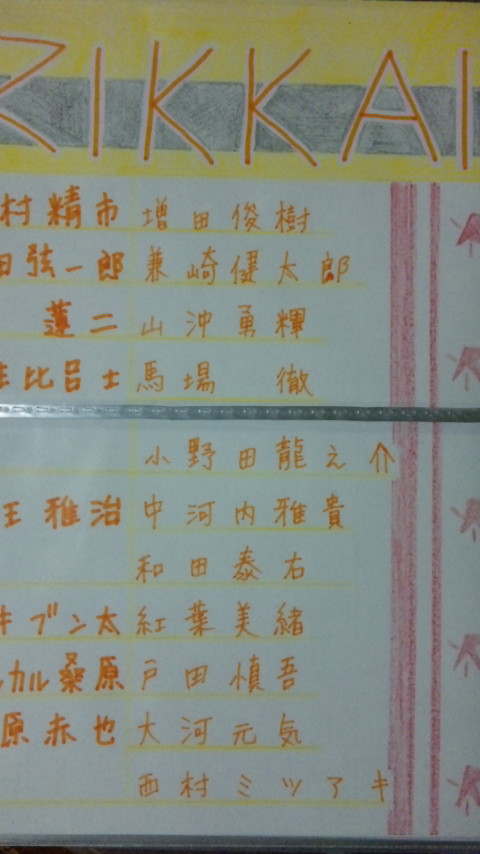 RIKKAI
村精市 増田俊樹
田弦一郎 兼崎健太郎
蓮二 山沖勇輝
生比呂士 馬場 徹
小野田龍之介
王雅治 中河内雅貴
和田泰右
ブン太 紅葉美緒
カル桑原 戸田慎吾
原赤也 大河元気
西村ミツアキ